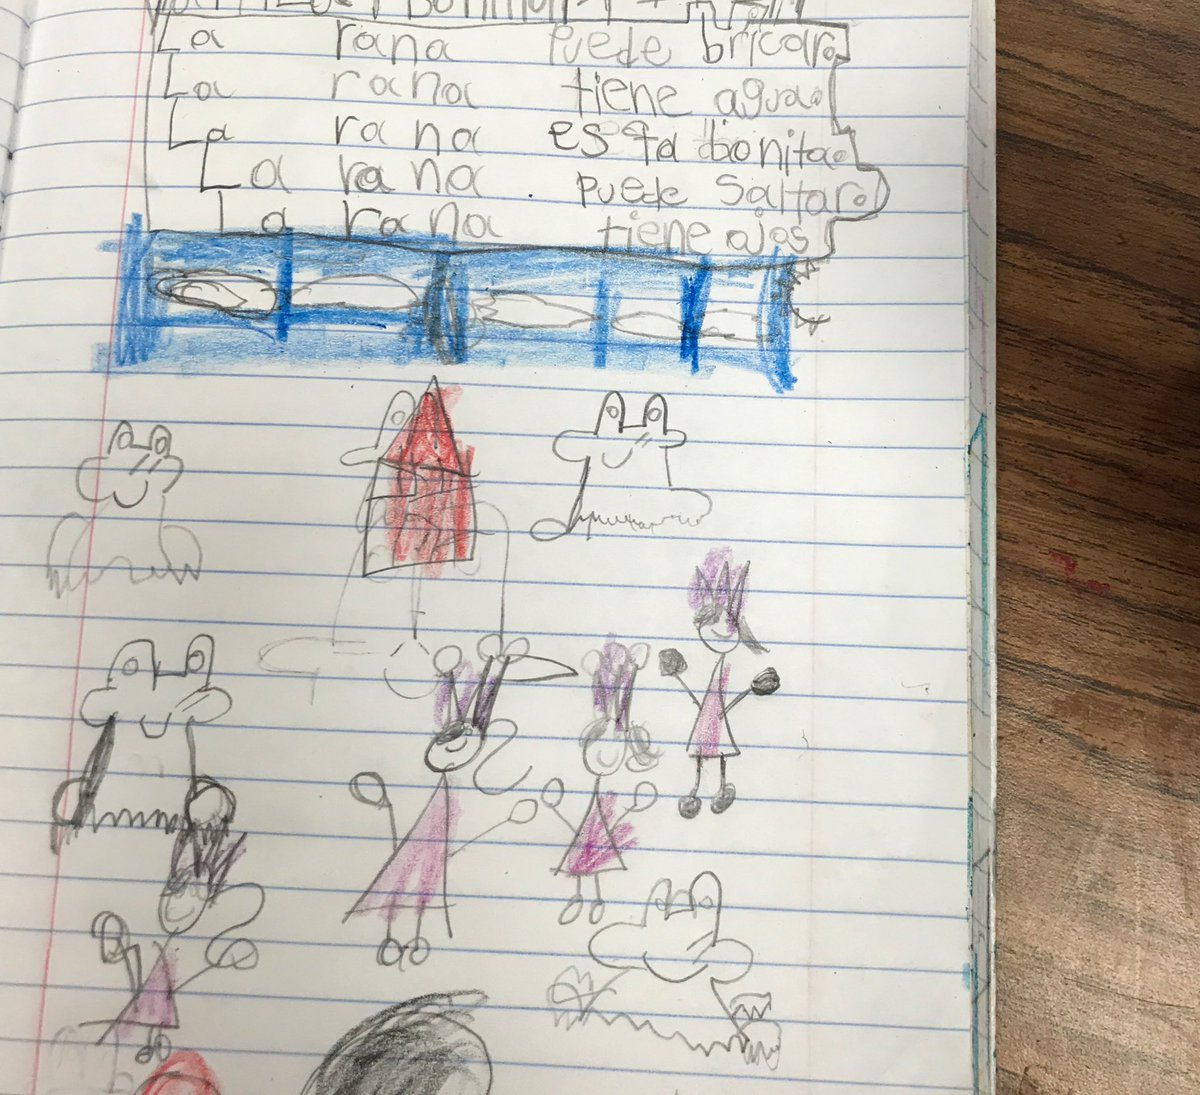 La rana puede bricar.
La rana tiene agua.
La rana esta bonita.
La rana puede Saltar.
La rana tiene ajos